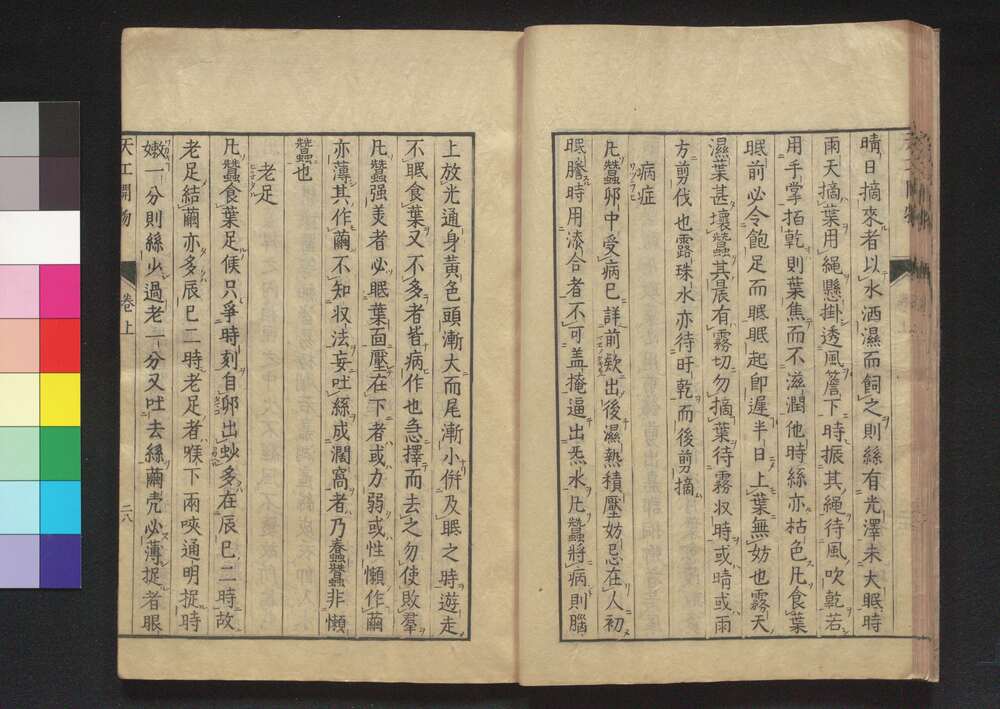 晴日摘來者以水洒濕而飼之則絲有光澤未大眠時
雨天摘葉用繩懸掛透風簷下時振其繩待風吹乾若
用手掌拍乾則葉焦而不滋潤他時絲亦枯色凡食葉
眠前必令飽足而眠眠起卽遲半日上葉無妨也霧天
濕葉甚壞蠶其晨有霧切勿摘葉待霧收時或晴或雨
方剪伐也露珠水亦待旴乾而後剪摘
病症
凡蠶卵中受病已詳前欵出後濕熱積壓妨忌在人初
眠騰時用漆合者不可盖掩逼出炁水凡蠶將病則腦
上放光通身黃色頭漸大而尾漸小倂及眠之時遊走
不眠食葉又不多者皆病作也急擇而去之勿使敗羣
凡蠶强美者必眠葉面壓在下者或力弱或性懶作繭
亦薄其作繭不知收法妄吐絲成濶窩者乃蠢蠶非懶
蠶也
老足
凡蠶食葉足候只爭時刻自卵出𧊅多在辰巳二時故
老足結繭亦多辰巳二時老足者喉下兩唊通明捉時
嫩一分則絲少過老一分又吐去絲繭壳必薄捉者眼
天工開物
卷上
二八